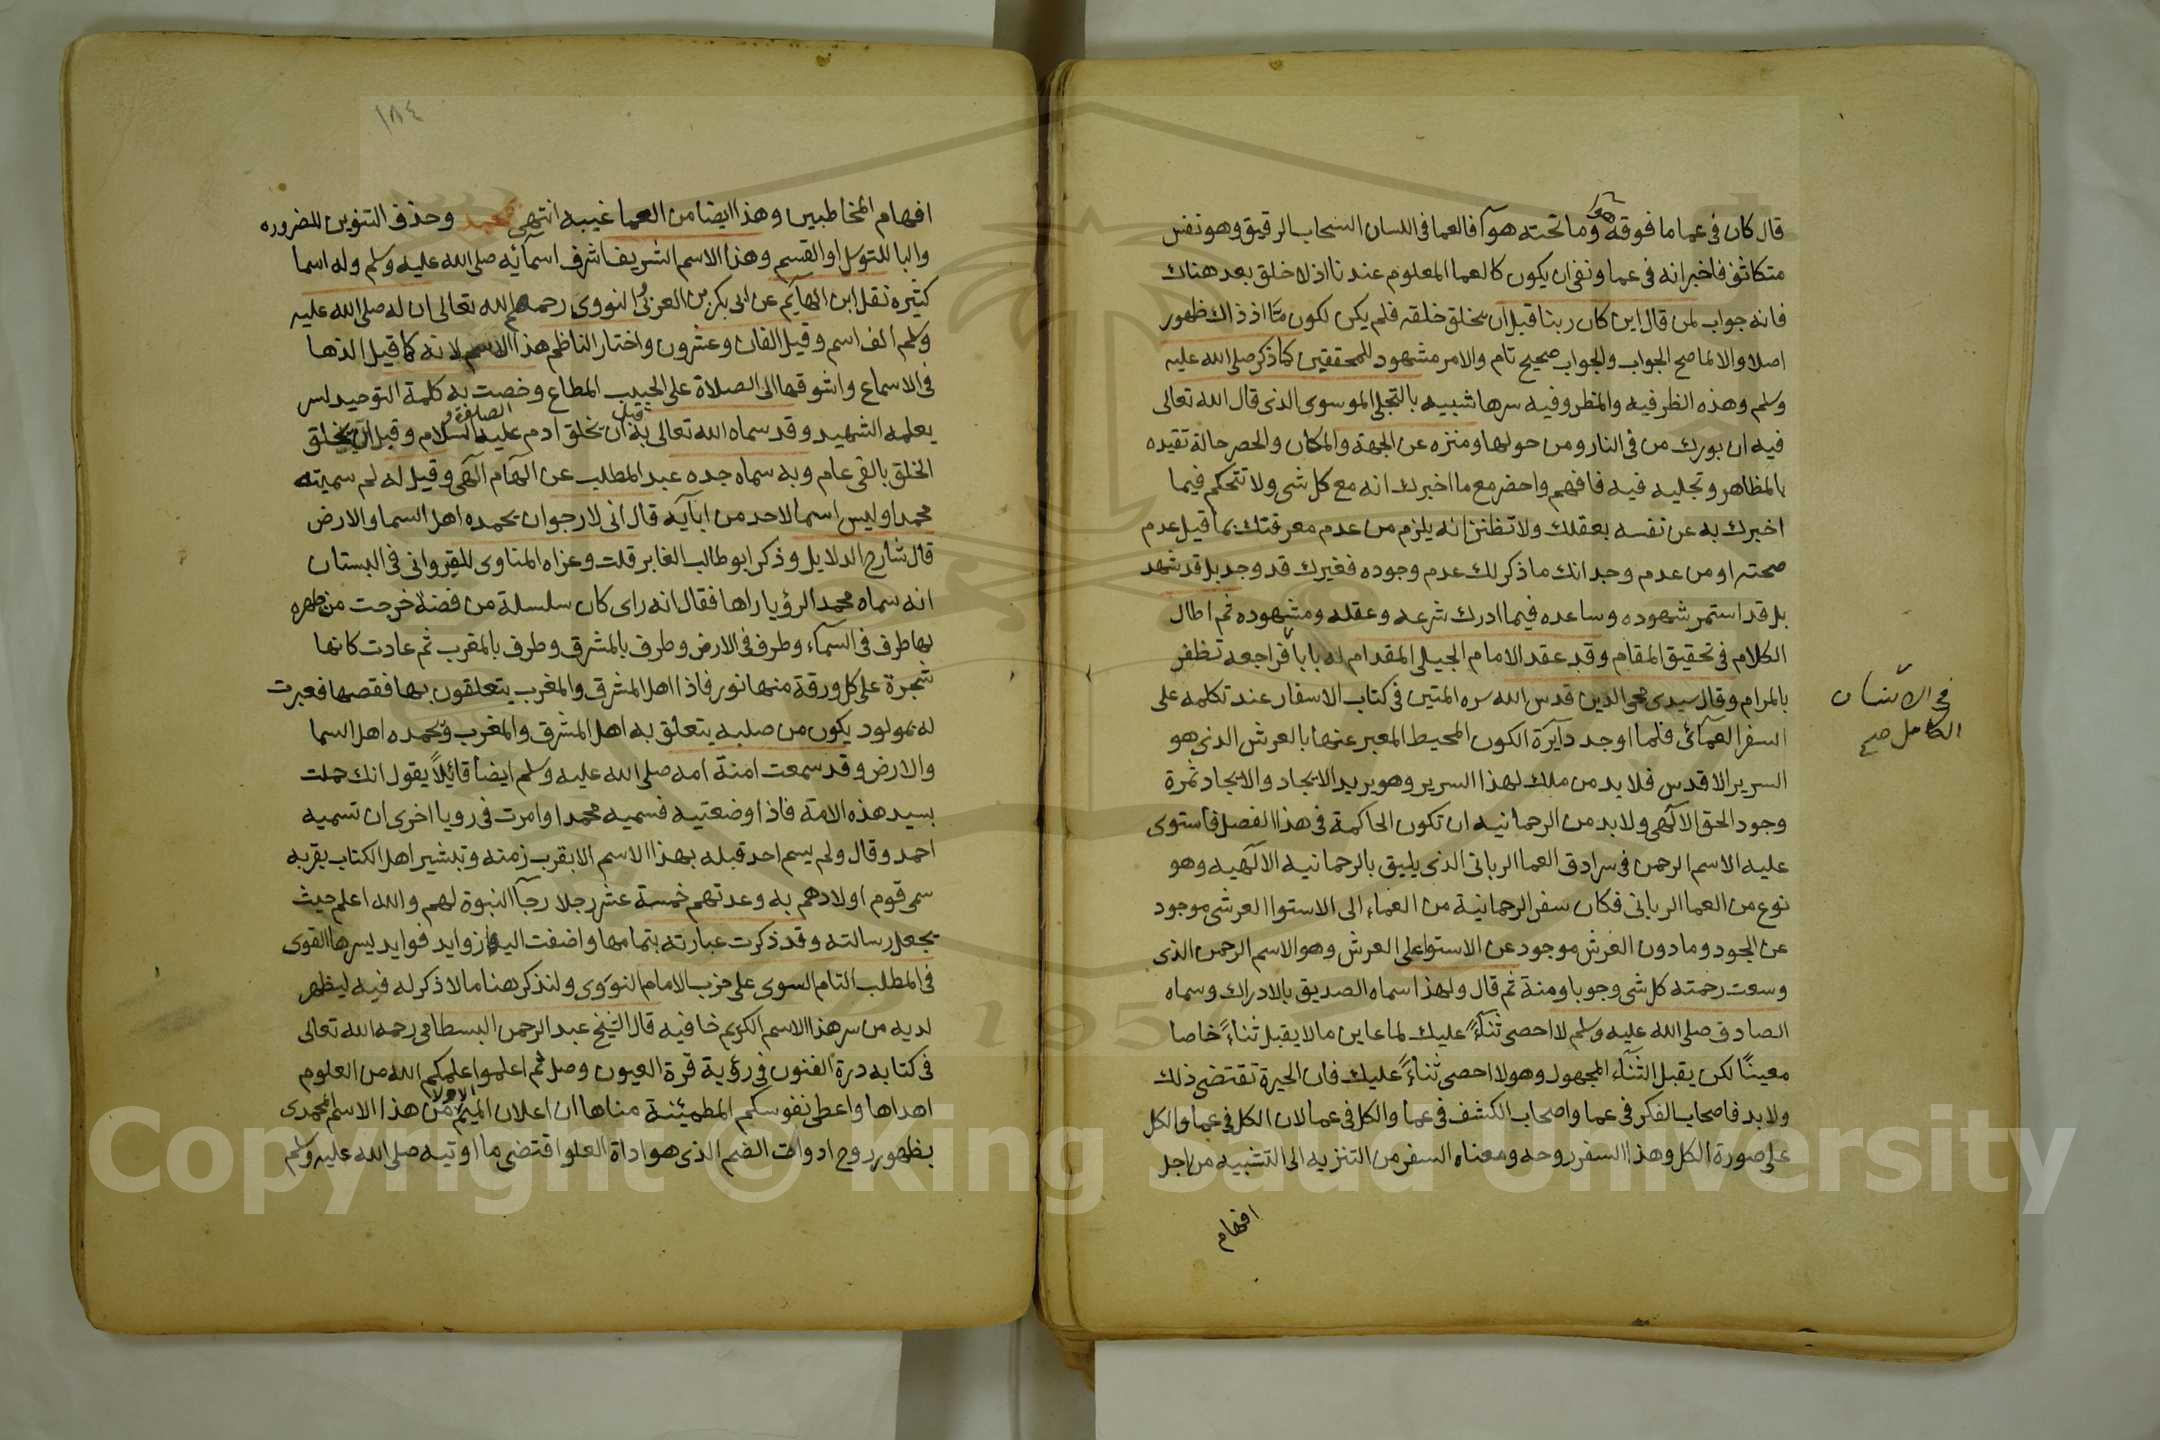 قال كان في عما ما فوقه هوا وما تحته هوآ فالعما في اللسان السحاب الرقيق وهو نفس
متكاثف فاخبر انه في عما ونفي ان يكون كالعما المعلوم عندنا اذ لا خلق بعد هناك
فانه جواب لمن قال اين كان ربنا قبل ان يخلق خلقه فلم يكن لكون متا اذ ذاك ظهور
اصلا والا لما صح الجواب والجواب صحيح تام والامر مشهود للمحققين كما ذكر صلى الله عليه
وسلم وهذه الظرفيه والمظروفيه سرها شبيه بالتجلي الموسوي الذي قال الله تعالى
فيه ان بورك من في النار ومن حولها ومنزه عن الجهة والمكان والحصر حالة تقيده
بالمظاهر وتجليه فيه فافهم واحضر مع ما اخبرك انه مع كل شي ولا تتحكم فيما
اخبرك به عن نفسه بعقلك ولا تظنن انه يلزم من عدم معرفتك بما قيل عدم
صحته او من عدم وجدانك ما ذكر لك عدم وجوده فغيرك قد وجد بل قد شهد
بل قد استمر شهوده وساعده فيما ادرك شرعه وعقله ومشهوده ثم اطال
الكلام في تحقيق المقام وقد عقد الامام الجيلي المقدام له بابا فراجعه تظفر
بالمرام وقال سيدي محي الدين قدس الله سره المتين في كتاب الاسفار عند تكلمه على
السفر العمآئي فلما اوجد دآيرة الكون المحيط المعبر عنها بالعرش الذي هو
السرير الاقدس فلا بد من ملك لهذا السرير وهو يريد الايجاد والايجاد ثمرة
وجود الحق الالٓهي ولا بد من الرحمانيه ان تكون الحاكمة في هذا الفصل فاستوى
عليه الاسم الرحمن في سرادق العما الرباني الذي يليق بالرحمانيه الالٓهيه وهو
نوع من العما الرباني فكان سفر الرحمانية من العماء الى الاستوا العرشي موجود
عن الجود وما دون العرش موجود عن الاستوا على العرش وهو الاسم الرحمن الذي
وسعت رحمته كل شي وجوبا ومنة ثم قال ولهذا سماه الصديق بالادراك وسماه
الصادق صلى الله عليه وسلم لا احصي ثنآءً عليك لما عاين ما لا يقبل ثناءً خاصا
معينًا لكن يقبل الثنآء المجهول وهو لا احصي ثناءً عليك فان الحيرة تقتضي ذلك
ولا بد فاصحاب الفكر في عما واصحاب الكشف في عما والكل في عما لان الكل في عما والكل
على صورة الكل وهذا السفر روحه ومعناه السفر من التنزيه الى التشبيه من اجل
افهام
في الانسان
الكامل صح
١٨٤
افهام المخاطبين وهذا ايضا من العما غيبه انتهى وحذف التنوين للضروره
والبا للتوسل او القسم وهذا الاسم الشريف اشرف اسمآئه صلى الله عليه وسلم وله اسما
كثيره نقل ابن الهآيم عن ابي بكر بن العربي والنووي رحمهم الله تعالى ان له صلى الله عليه
وسلم الف اسم وقيل الفان وعشرون واختار الناظم هذا الاسم لانه كما قيل الذها
في الاسماع واشوقها الى الصلاة على الحبيب المطاع وخصت به كلمة التوحيد لسر
يعلمه الشهيد وقد سماه الله تعالى به قبل ان يخلق ادم عليه الصلوة والسلام وقبل ان يخلق
الخلق بالفي عام وبه سماه جده عبد المطلب عن الهام الٓهي وقيل له لم سميته
محمدا وليس اسما لاحد من ابآيه قال اني لارجو ان يحمده اهل السما والارض
قال شارح الدلايل وذكر ابو طالب العابر قلت وعزاه المناوي للقيرواني في البستان
انه سماه محمد الرؤيا راها فقال انه راى كان سلسلة من فضة خرجت من ظهره
لها طرف في السمآء وطرف في الارض وطرف بالمشرق وطرف بالمغرب ثم عادت كانها
شجرة على كل ورقة منها نور فاذا اهل المشرق والمغرب يتعلقون بها فقصها فعبرت
له بمولود يكون من صلبه يتعلق به اهل المشرق والمغرب ويحمده اهل السما
والارض وقد سمعت امنة امه صلى الله عليه وسلم ايضا قائلاً يقول انك حملت
بسيد هذه الامة فاذا وضعتيه فسميه محمدا وامرت في رويا اخرى ان تسميه
احمد وقال ولم يسم احد قبله بهذا الاسم الا بقرب زمنه وتبشير اهل الكتاب بقربه
سمى قوم اولادهم به وعدتهم خمسة عشر رجلا رجآ النبوة لهم والله اعلم حيث
يجعل رسالته وقد ذكرت عبارته بتمامها واضفت اليها زوايد فوايد يسرها القوي
في المطلب التام السوي على حزب الامام النووي ولنذكر هنا ما لا ذكر له فيه ليظهر
لديه من سر هذا الاسم الكريم خافيه قال الشيخ عبد الرحمن البسطامي رحمه الله تعالى
في كتابه درة الفنون في رؤية قرة العيون وصل ثم اعلموا علمكم الله من العلوم
اهداها واعطى نفوسكم المطمئنة مناها ان اعلان الميم الاولى من هذا الاسم المحمدي
بظهور روح ادوات الضم الذي هو اداة العلو اقتضى ما اوتيه صلى الله عليه وسلم
Copyright © King Saud University
1957